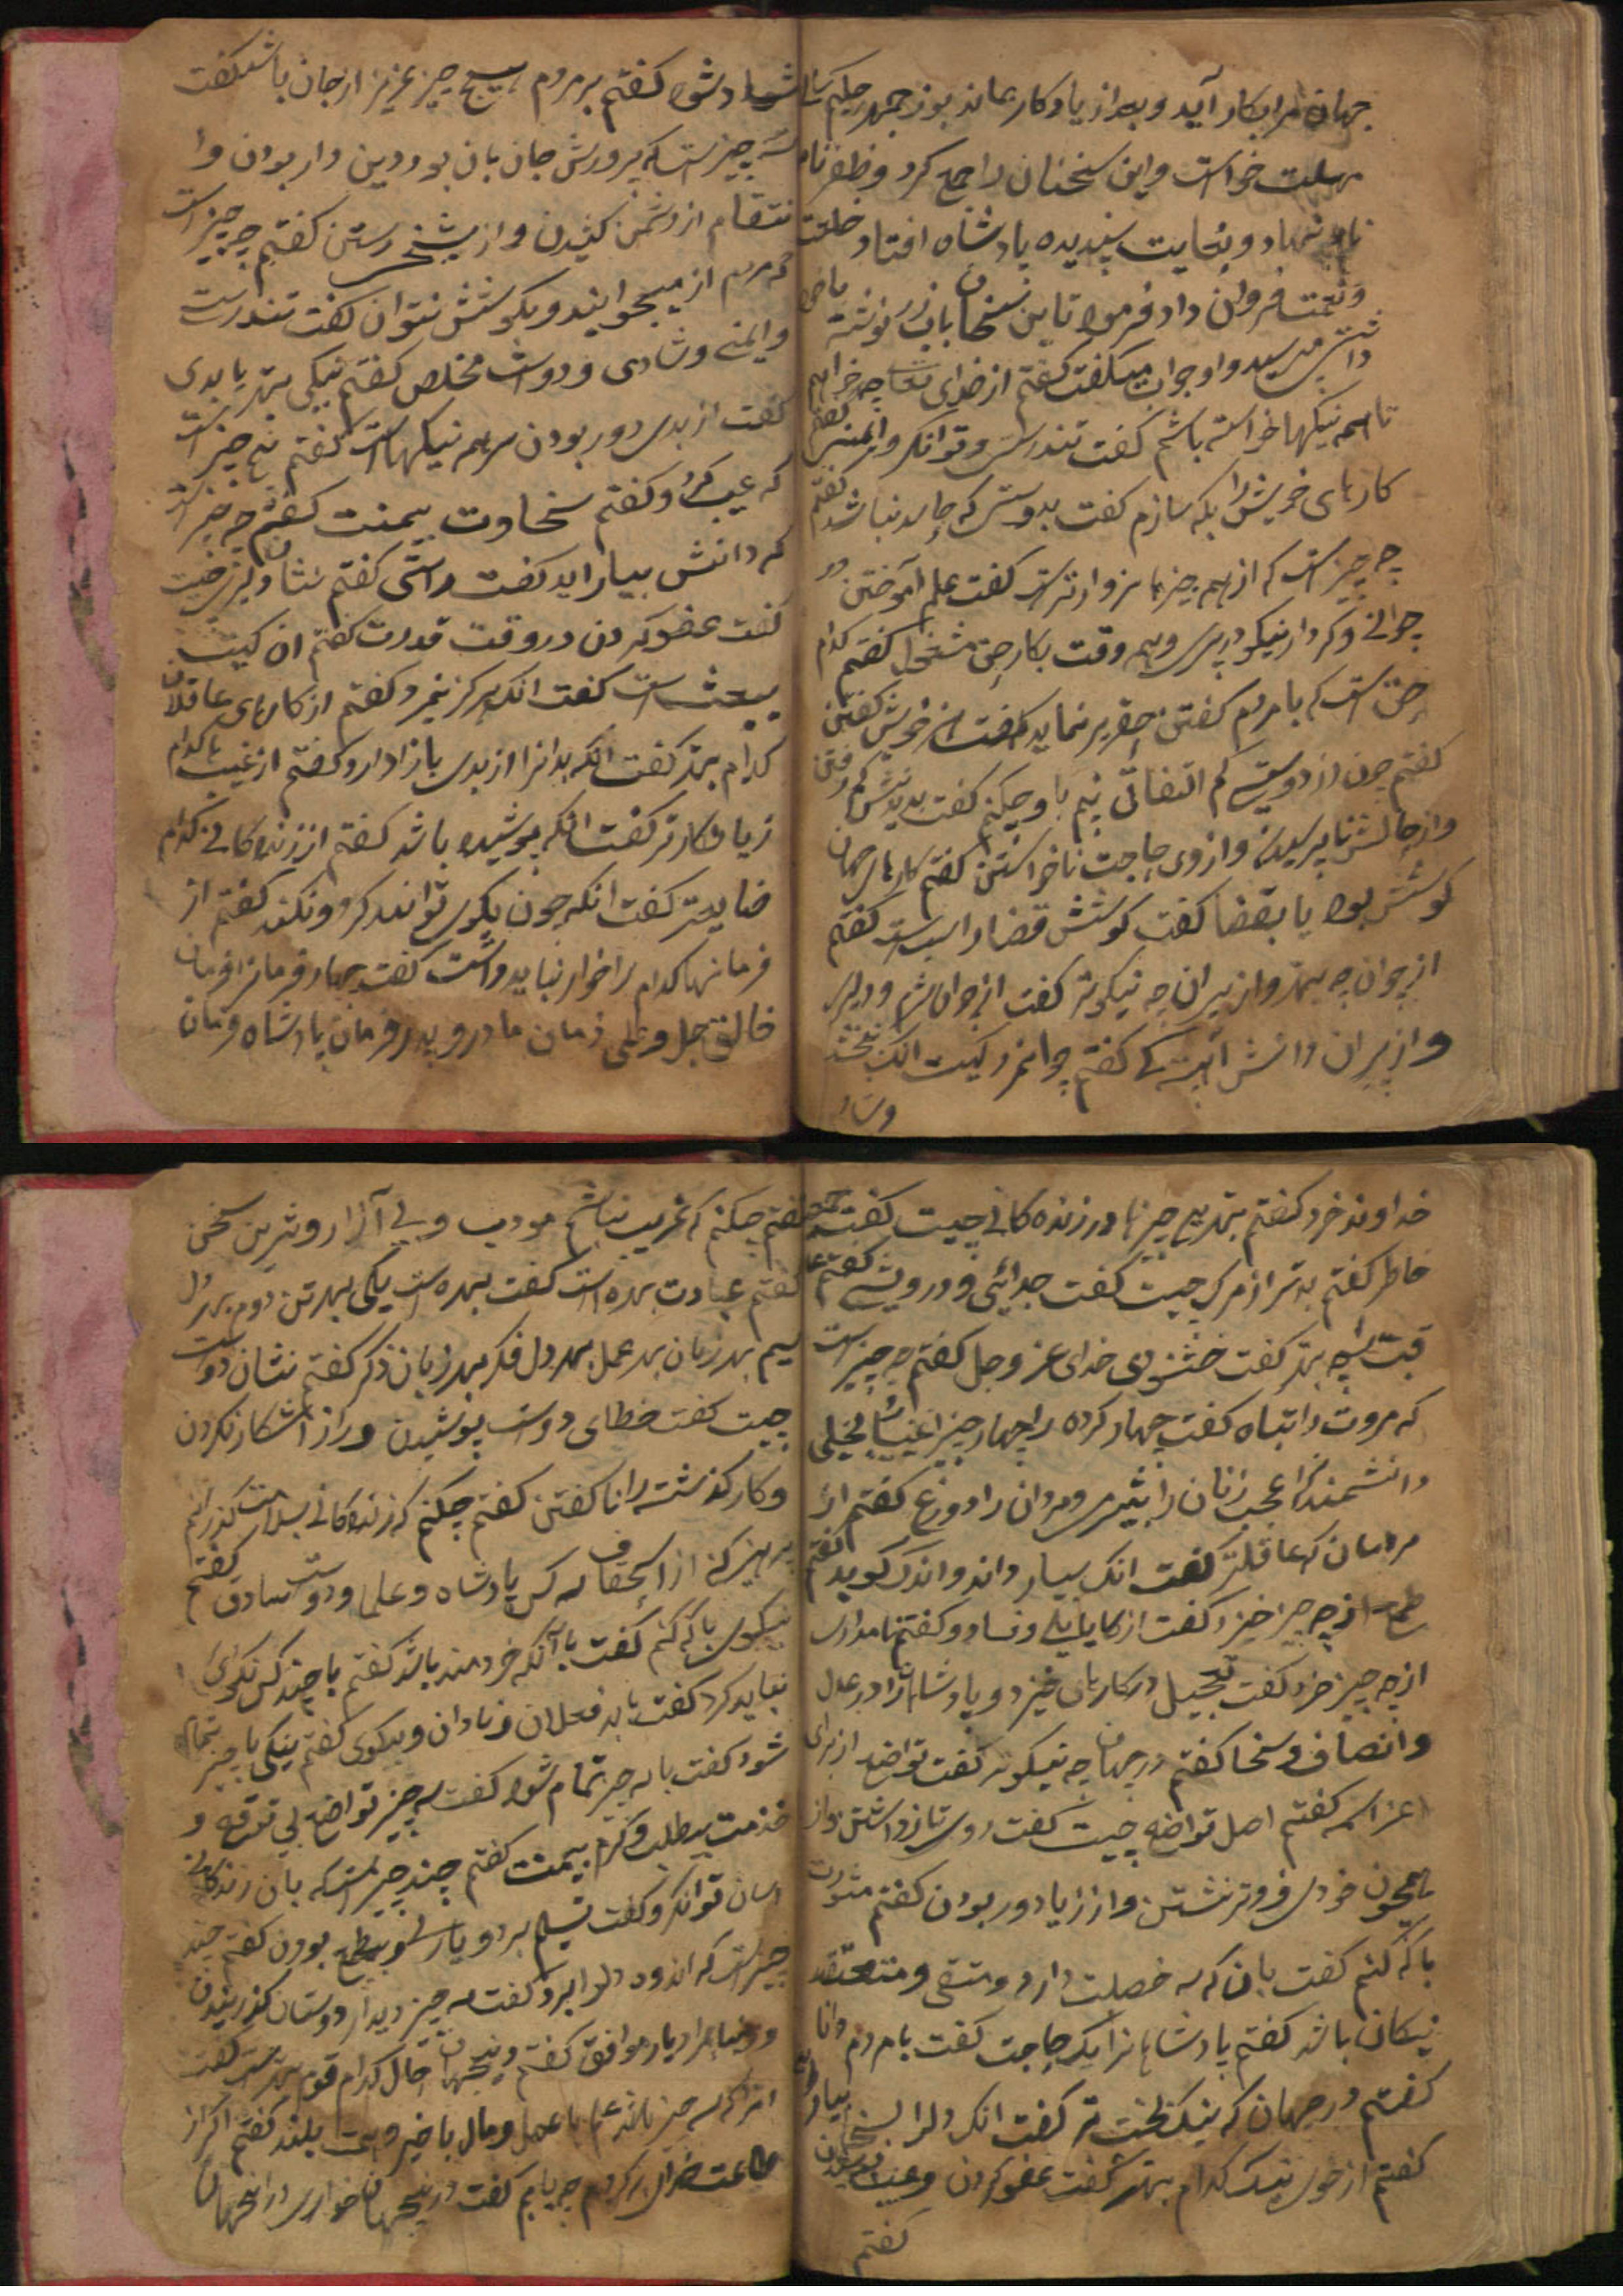 جهان مرا بکار آید و بعد از یادکار بماند بوزجمهر حکیم
مهلت خواست و این سخنان را جمع کرد و ظفرنامه
نام نهاد و بغایت پسندیده پادشاه افتاد خلعت
و نعمت فراوان داد فرمود تا این سخنان باب زر نوشته
می پرسید و او جواب میکفت کفتم از خدای تعالی چه خواهم
تا همه نیکیها خواسته باشم کفت تندرستی و توانکری و ایمنی کفتم
کارهای خویش را بکه سازم کفت بدوستی که حاسد نباشد کفتم
چه چیز است که از همه چیزها سزاوارتر است کفت علم آموختن در
جوانی و کردار نیکو در پیری و همه وقت بکار حق مشغول کفتم کدام
حق است که با مردم کفتن حقیر نماید کفت هنر خویش کفتن
کفتم چون از دوستی کم التفاتی بینم با او چکنم کفت بدیدنش کم رفتن
و از حالش ناپرسیدن و از وی حاجت ناخواستن کفتم کارهای جهان
کوشش بود یا بقضا کفت کوشش قضا را سبب است کفتم
از جوان چه بهتر و از پیران چه نیکوتر کفت از جوان شرم و دلیری
و از پیران دانش و آهستکی کفتم جوانمرد کیست آنک ببخشد
و شاد
شاد شود کفتم بر مردم هیچ چیز عزیز از جان باشد کفت
سه چیز است که پرورش جان بان بود دین دار بودن و ا
نتقام از دشمن کشیدن و از سختی رستن کفتم چه چیز است
که مردم از میجوایند و بکوشش نتوان کفت تندرست
و ایمنی و شادی و دوست مخلص کفتم نیکی بهتر یا بدی
کفت از بدی دور بودن سر همه نیکیها است کفتم هیچ چیز است
که عیب کردد کفتم سخاوت بیمنت کفتم چه چیز است
که دانش بیاراید کفت راستی کفتم نشان دلیری چیست
کفت عفو کردن در وقت قدرت کفتم آن کیست
بیعیب است کفت انکه هرکز نمیرد کفتم از کارهای عاقلان
کدام بهتر کفت انکه بدانرا از بدی باز ادارد کفتم از عیبها کدام
زیانکارتر کفت انکه پوشیده باشد کفتم از زندکانی کدام
ضایعتر کفت انکه چون نیکوی توانند کرد و نکند کفتم از
فرمانها کدام را خوار نباید داشت کفت چهار فرمان را فرمان
خالق جل و علی فرمان مادر و پدر و فرمان پادشاه فرمان
خداوند خرد کفتم بهترین چیزها در زندکانی چیست کفت
خاطر کفتم بدتر از مرک چیست کفت جدائی و درویشی کفتم
قبت را چه بهتر کفت خشنودی خدای عز و جل کفتم چه چیز است
که مروت را تباه کفت چهار کروه را چهار چیز اغنیا را بخیلی
دانشمندانرا عجب زنان را بیشرمی مردان را دروغ کفتم از
مردمان که عاقلتر کفت انک بسیار داند و اندک کوید کفتم
طمع از چه چیز خیزد کفت از کاهلی و فساد و کفتم نامدارى
از چه چیز خیزد کفت تعجیل در کار بان خیزد و پادشاهانرا در عدل
و انصاف و سخا کفتم در جهان چه نیکوتر کفت تواضع از برای
اعزاسه کفتم اصل تواضع چیست کفت روی تازه داشتن و از
همچون خودی فروتر نشستن و از ریا دور بودن کفتم مشورت
با که کنم کفت بان که سه خصلت دارد و متقی و معتقد
نیکان باشد کفتم پادشاهانرا بکه حاجت کفت بامردم دانا
کفتم در جهان که نیکبخت تر کفت انک دلرا بسخا بیاراید
کفتم از خوی نیک کدام بهتر کفت عفو کردن و عیب پوشیدن
کفتم
کفتم چکنم که غریب نباشم مودب و بی آزار و شیرین سخن
کفتم عبادت بهره است کفت سه بهره است یکی بهر تن دوم بهر دل
سیم بهر زبان بهر عمل بهر دل فکر بهر زبان ذکر کفتم نشان دوست
چیست کفت خطای دوست پوشیدن و راز آشکار نکردن
و کار کذشته را ناکفتن کفتم چکنم که زندکانی بسلامت کذرانم
پرهیز کن از استحقاف سه کس پادشاه و علما و دوست صادق کفتم
نیکوی با که کنم کفت با آنکه خردمند باشد کفتم با چند کس نکوی
نباید کرد کفت با بد فعلان و نادان و بدکوی کفتم نیکی با چه چیز تمام
شود کفت با سه چیز تمام شود کفت سه چیز تواضع بی توقع و
خدمت بیطلب و کرم بیمنت کفتم چند چیز است که بان زندکانی
اسان توان کرد کفت تسلیم بردباری و بیطمع بودن کفتم چند
چیز است که اندوه دلرا ببرد کفت سه چیز دیدار دوستان کفتار شنیدن
و یار موافق کفتم در این جهان حال کدام قوم بهتر است کفت
انرا که سه چیز باشد علم با عمل و مال با خیر و همت بلند کفتم اکر از
طاعت خدای بکردم چه یابم کفت در اینجهان خواری در آنجهان